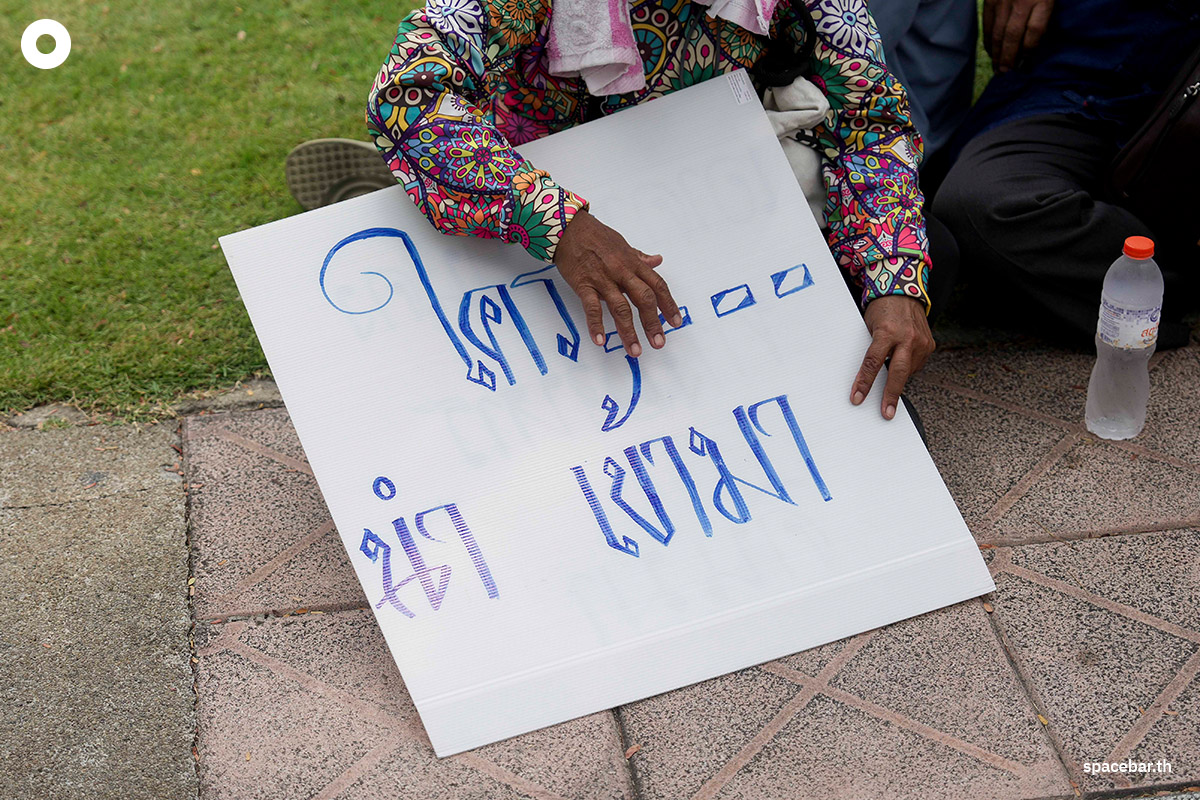 ใคร----
นำ เขามา
spacebar.th